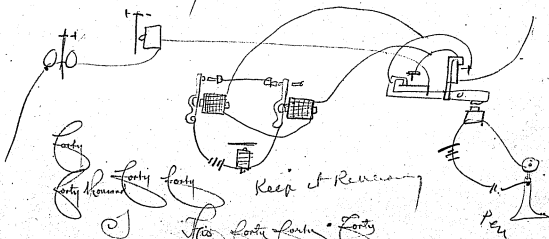 Forty
Forty thousand Forty Forty
Keep it Running
This Forty Forty Forty
Pen